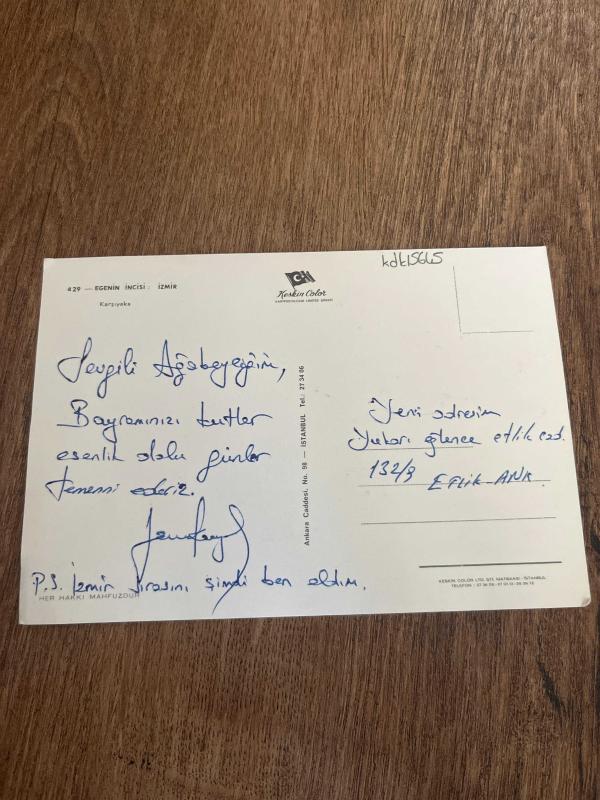 kdk15645
429 — EGENİN İNCİSİ : İZMİR
Karşıyaka
Keskin Color
KARTPOSTALCILIK LİMİTED ŞİRKETİ
Sevgili Ağabeyeğim,
Bayramınızı kutlar
esenlik dolu günler
temenni ederiz.
P.S. İzmir sırasını şimdi ben aldım.
HER HAKKI MAHFUZDUR
Ankara Caddesi, No. 98 — İSTANBUL Tel.: 27 34 06
Yeni adresim
Yukarı eğlence etlik cad.
132/3 Etlik-ANK.
KESKİN COLOR LTD. ŞTİ. MATBAASI - İSTANBUL